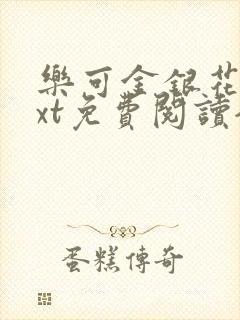 樂可金銀花
xt免費閱讀
蛋糕傳奇